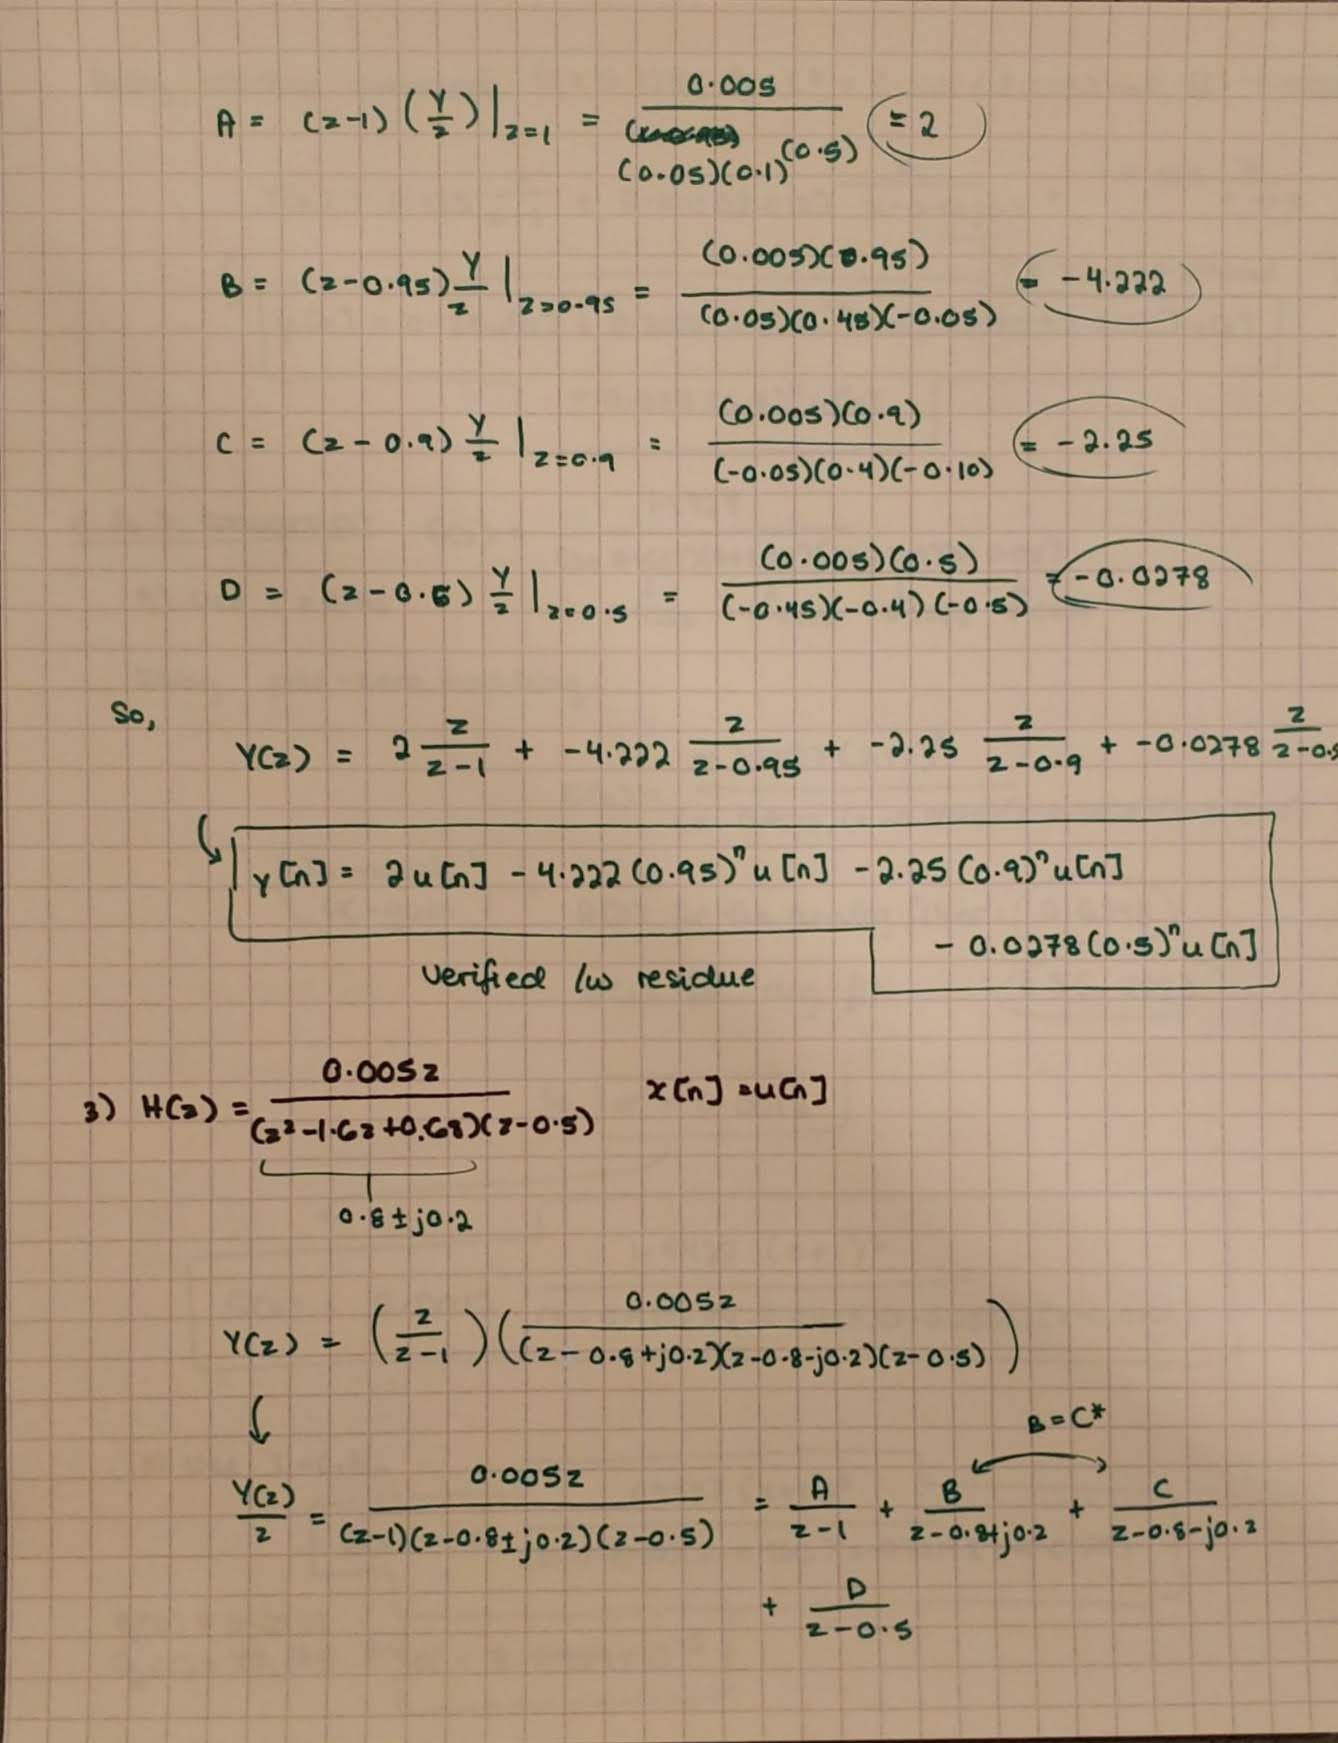 A = (z-1) (Y/z) |z=1 = 0.005 / (0.05)(0.1)(0.5) = 2
B = (z-0.95) Y/z |z=0.95 = (0.005)(0.95) / (0.05)(0.45)(-0.05) = -4.222
C = (z-0.9) Y/z |z=0.9 = (0.005)(0.9) / (-0.05)(0.4)(-0.10) = -2.25
D = (z-0.5) Y/z |z=0.5 = (0.005)(0.5) / (-0.45)(-0.4)(-0.5) = -0.0278
So,
Y(z) = 2 z/(z-1) + -4.222 z/(z-0.95) + -2.25 z/(z-0.9) + -0.0278 z/(z-0.5
y[n] = 2u[n] - 4.222(0.95)^n u[n] - 2.25(0.9)^n u[n]
- 0.0278(0.5)^n u[n]
verified /w residue
3) H(z) = 0.005z / (z²-1.6z+0.68)(z-0.5) x[n] = u[n]
0.8 ± j0.2
Y(z) = (z/(z-1)) (0.005z / (z-0.8+j0.2)(z-0.8-j0.2)(z-0.5))
B = C*
Y(z)/z = 0.005z / (z-1)(z-0.8±j0.2)(z-0.5) = A/(z-1) + B/(z-0.8+j0.2) + C/(z-0.8-j0.2)
+ D/(z-0.5)